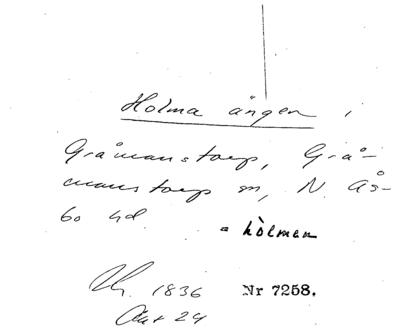 Holma ången,
Gråmanstorp, Grå-
manstorps sn, N. Ås-
bo hd.
= hòlmen
1836 Nr 7258.
Akt 24